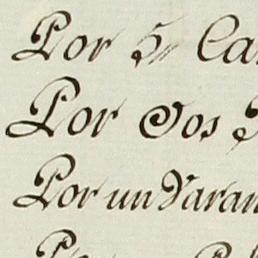 Por 5 Ca
Por Dos
Por un Varan